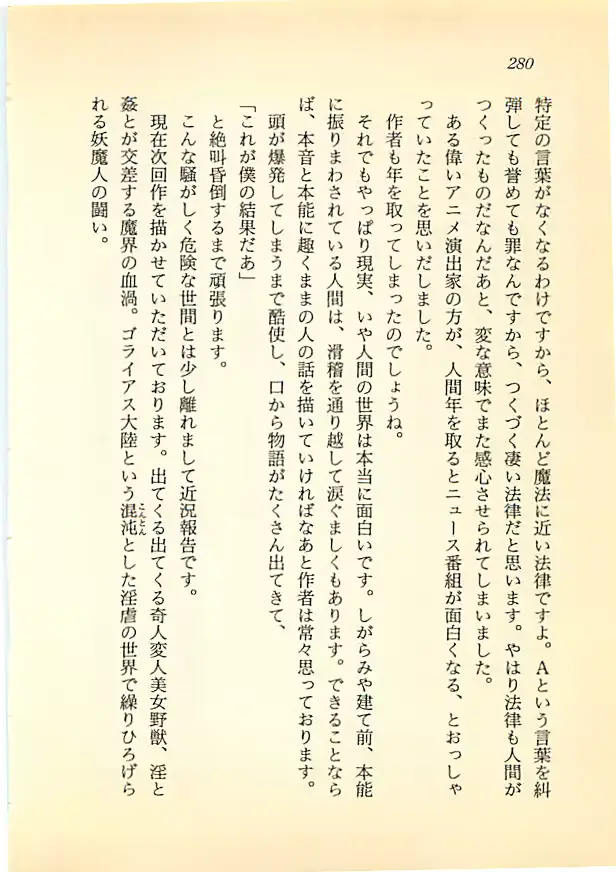 280
特定の言葉がなくなるわけですから、ほとんど魔法に近い法律ですよ。Aという言葉を糾
弾しても誉めても罪なんですから、つくづく凄い法律だと思います。やはり法律も人間が
つくったものだなんだあと、変な意味でまた感心させられてしまいました。
ある偉いアニメ演出家の方が、人間年を取るとニュース番組が面白くなる、とおっしゃ
っていたことを思いだしました。
作者も年を取ってしまったのでしょうね。
それでもやっぱり現実、いや人間の世界は本当に面白いです。しがらみや建て前、本能
に振りまわされている人間は、滑稽を通り越して涙ぐましくもあります。できることなら
ば、本音と本能に趣くままの人の話を描いていければなあと作者は常々思っております。
頭が爆発してしまうまで酷使し、口から物語がたくさん出てきて、
「これが僕の結果だあ」
と絶叫昏倒するまで頑張ります。
こんな騒がしく危険な世間とは少し離れまして近況報告です。
現在次回作を描かせていただいております。出てくる出てくる奇人変人美女野獣、淫と
姦とが交差する魔界の血渦。ゴライアス大陸という混沌とした淫虐の世界で繰りひろげら
こんとん
れる妖魔人の闘い。